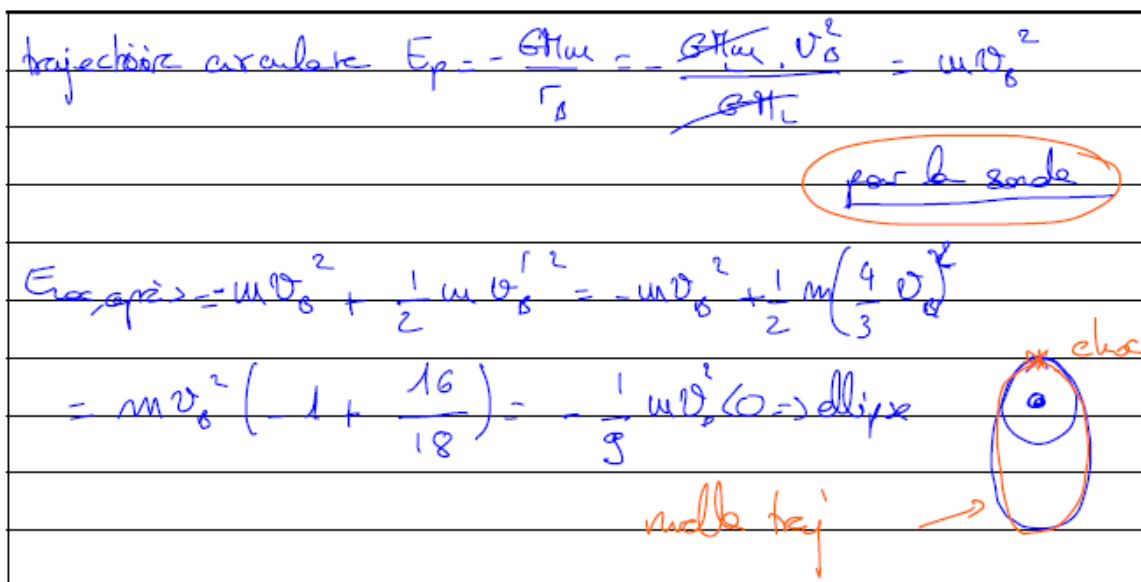 trajectoire circulaire E_p = - GMm / r_B = - GMm . v_B² / GM_L = m v_B²
pour la sonde
E_méc, après = - m v_B² + 1/2 m v_B'² = - m v_B² + 1/2 m (4/3 v_B)²
choc
= m v_B² ( - 1 + 16/18 ) = - 1/9 m v_B² < 0 => ellipse
nvelle traj